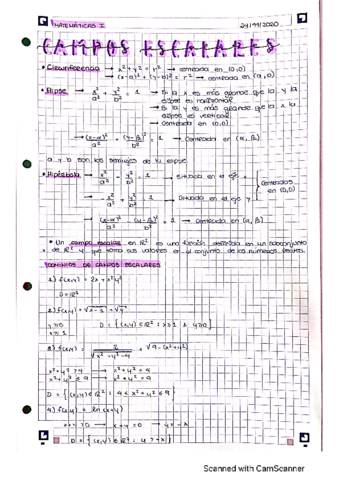 MATEMÁTICAS I 24/11/2020
CAMPOS ESCALARES
• Circunferencia → x² + y² = r² → centrada en (0,0)
→ (x-a)² + (y-b)² = r² → centrada en (a,b)
• Elipse → x²/a² + y²/b² = 1 → Si la x es más grande que la y la
elipse es horizontal
→ Si la y es más grande que la x la
elipse es vertical
→ Centrada en (0,0)
→ (x-α)²/a² + (y-β)²/b² = 1 → Centrada en (α, β)
a y b son los semiejes de la elipse
• Hipérbola → x²/a² - y²/b² = 1 → situada en el eje
→ -x²/a² + y²/b² = 1 → situada en el eje y
centradas
en (0,0)
→ (x-α)²/a² - (y-β)²/b² = 1 → Centrada en (α, β)
• Un campo escalar en ℝ² es una función definida en un subconjunto
de ℝ² y que toma sus valores en el conjunto de los números reales.
DOMINIOS DE CAMPOS ESCALARES
1) f(x,y) = 2x + x²y²
D = ℝ²
2) f(x,y) =
y≥0 D = {(x,y) ∈ ℝ² : x≥1 y≥0}
x≥1
3) f(x,y) = 2/√(x²+y²-4) + √(9-(x²+y²))
x²+y² > 4 → x²+y² = 4
x²+y² ≤ 9 → x²+y² = 9
D = {(x,y) ∈ ℝ² : 4 < x²+y² ≤ 9}
4) f(x,y) = ln(x+y)
x+y > 0 → x+y = 0 y = -x
D = {(x,y) ∈ ℝ² : y > -x}
Scanned with CamScanner